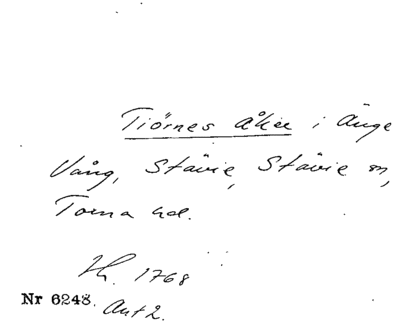 Tiörnes åker i Änge
Vång, Stävie, Stävie sn,
Torna hd.
Lh. 1768
Nr 6248. Ant 2.